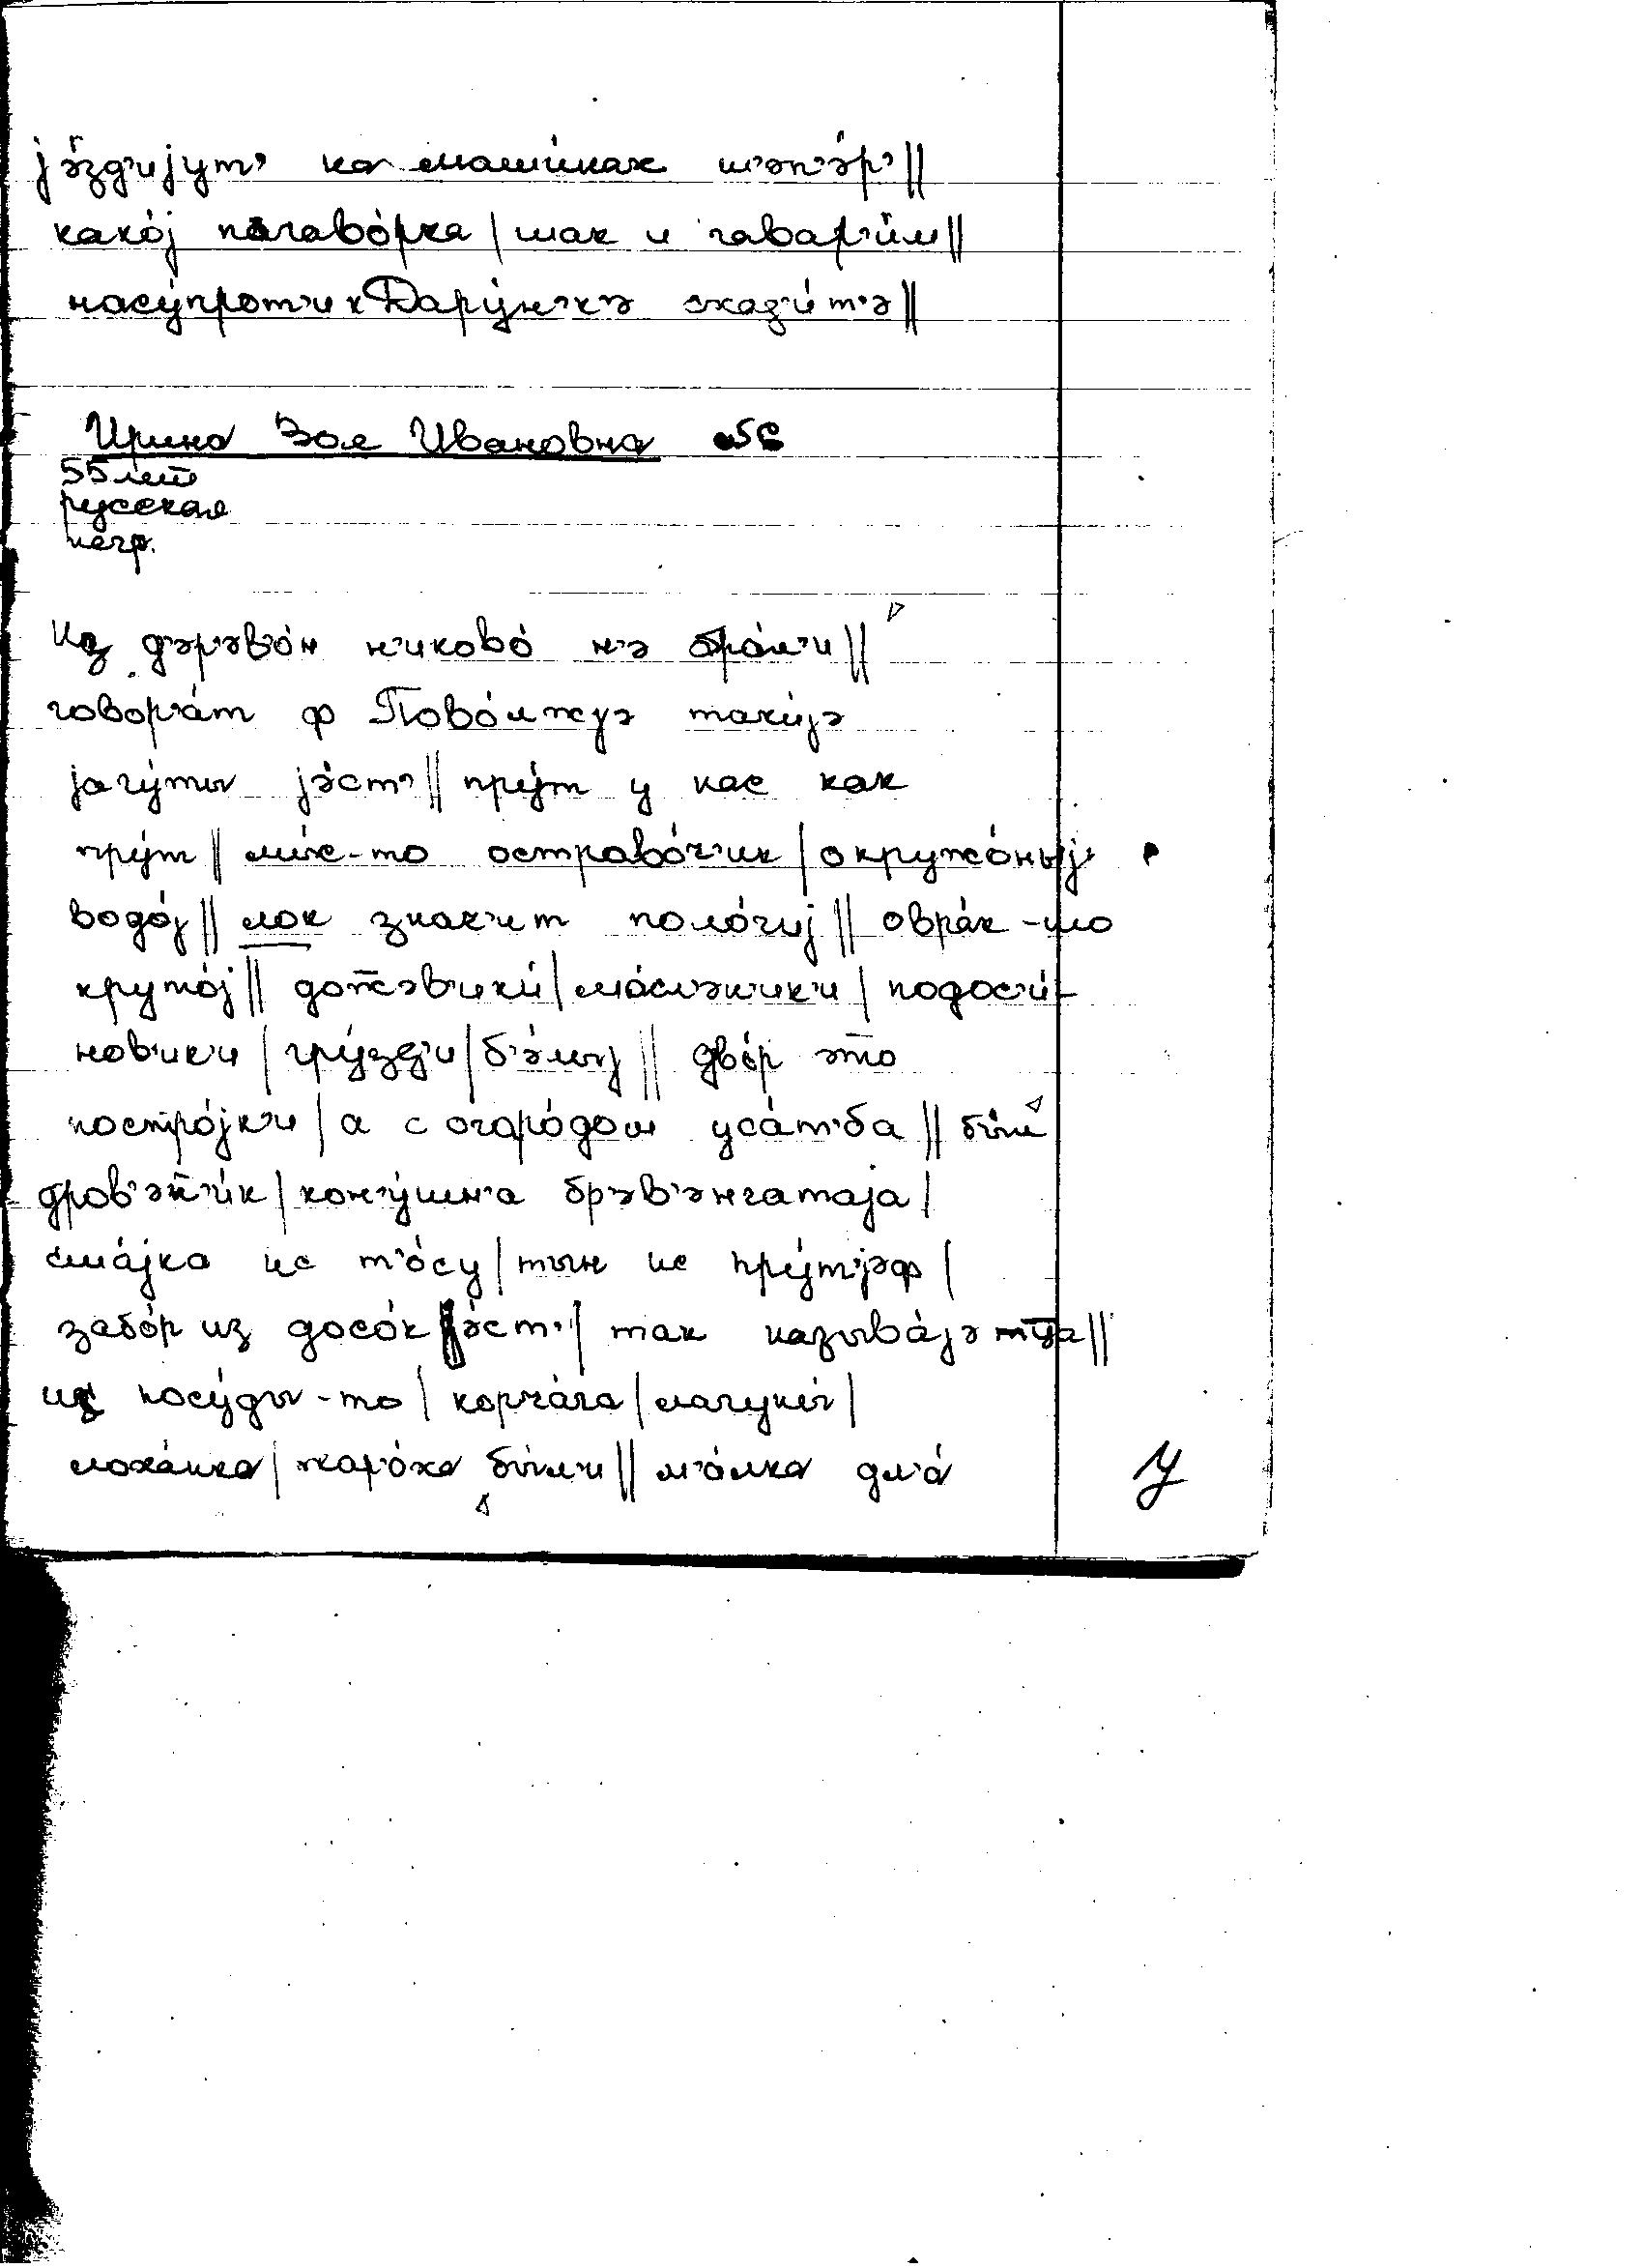 jэ́зд'иjут' на маши́нах т'эп'э́р'||
како́j пагаво́рка | так и гавар'и́м||
насу́прот'и к Дару́н'к'э схад'и́т'э||
Ирина Зоя Ивановна
55 лет
русская
негр.
Из д'эр'эв'о́н н'иково́ н'э бра́л'и||
говор'а́т ф Пово́лжjэ таки́jэ
jагу́ты jэ́ст'|| пру́т у нас как
пру́т || -то островочик | окружо́ныj
водо́j || лок знач'ит поло́гиj || овра́к -то
круто́j || ма́сл'эники | подос'и́-
нов'ики | гру́зд'и | б'э́лыj || дво́р это
постро́jк'и | а с огоро́дом уса́т'ба || был
дров'эн'и́к | кон'у́шн'а бр'эв'энчатаjа |
ста́jка ис т'о́су | тын ис пру́т'jэф |
забо́р из досо́к jэ́ст' | так называ́jэтца ||
из посу́ды -то | корча́га | лагуны́ |
лоха́нка | жаро́ха бы́л'и || м'а́лка дл'а́
У